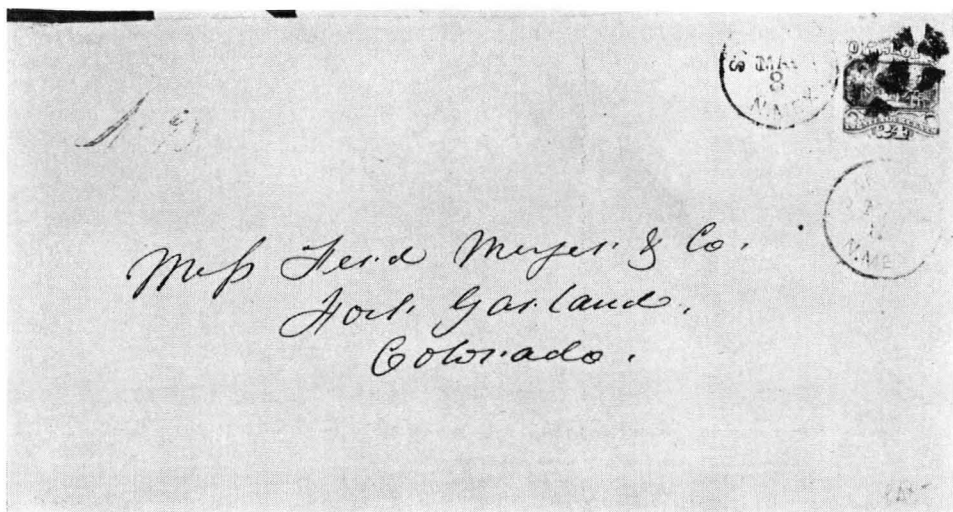 S MAR
8
N.MEX.
24
12
N.MEX
Mess Ferd Meyer & Co.
Fort Garland.
Colorado.